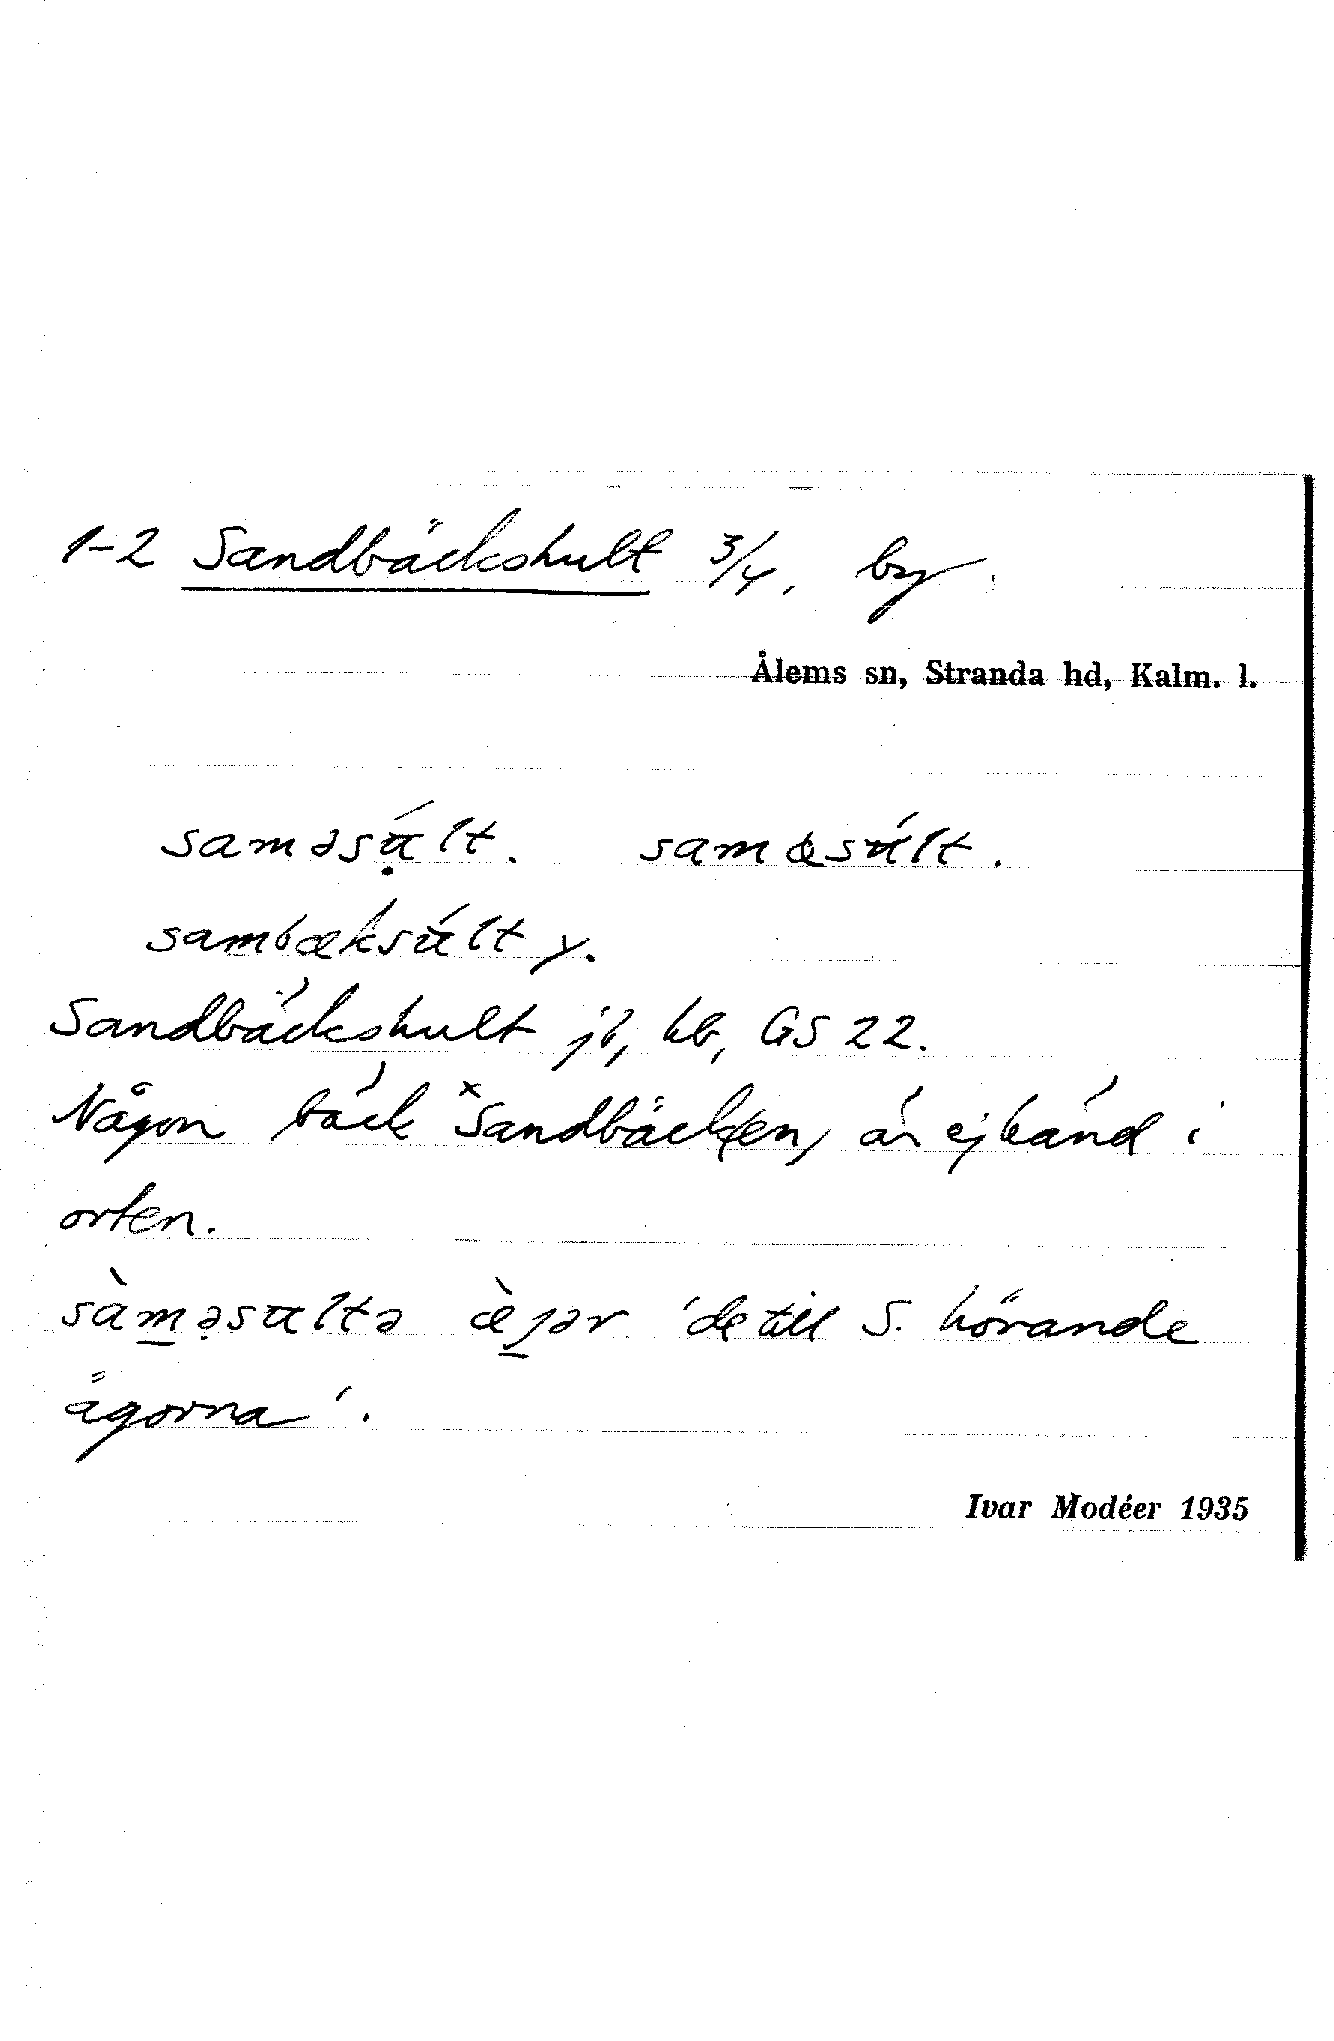 1-2 Sandbäckshult 3/4, by.
Ålems sn, Stranda hd, Kalm. l.
saməsúlt. samæsúlt.
sambæksúlt y.
Sandbäckshult jb, kb, GS 22.
Någon bäck ˣSandbäck(en) är ej känd i
orten.
sàməsultə æ̀jər 'de till S. hörande
ägorna'.
Ivar Modéer 1935